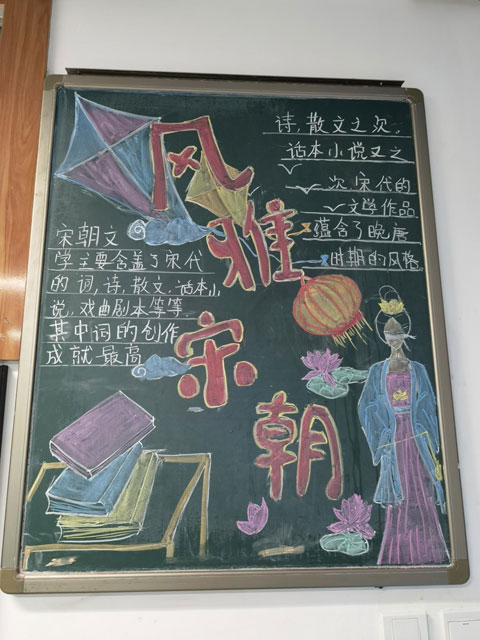 风雅宋朝
宋朝文
学主要含盖了宋代
的词,诗,散文,话本小
说,戏曲剧本等等
其中词的创作
成就最高
诗,散文之次,
话本小说又之
次.宋代的
文学作品
蕴含了晚唐
时期的风格